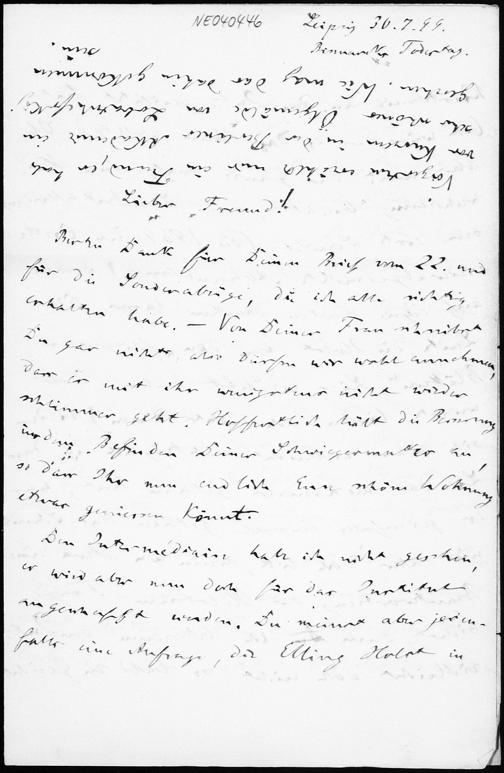 NE040446
Leipzig 30.7.99.
Bismarcks Todestag.
Vorgestern erzählte mir ein Freund, er habe
vor Kurzem in der Berliner Akademie ein
sehr schönes Ölgemälde von Lobatschefskij
gesehen. Wie mag das dahin gekommen
sein.
Lieber Freund!
Besten Dank für Deinen Brief vom 22. und
für die Sonderabzüge, die ich alle richtig
erhalten habe. — Von Deiner Frau schreibst
Du gar nichts, also dürfen wir wohl annehmen,
dass es mit ihr wenigstens nicht wieder
schlimmer geht. Hoffentlich hält die Besserung
in dem Befinden Deiner Schwiegermutter an,
so dass Ihr nun endlich Eure schöne Wohnung
etwas geniessen könnt.
Den Intermédiaire habe ich nicht gesehen,
er wird aber nun doch für das Institut
angeschafft werden. Du meinst aber jeden-
falls eine Anfrage, die Elling Holst in